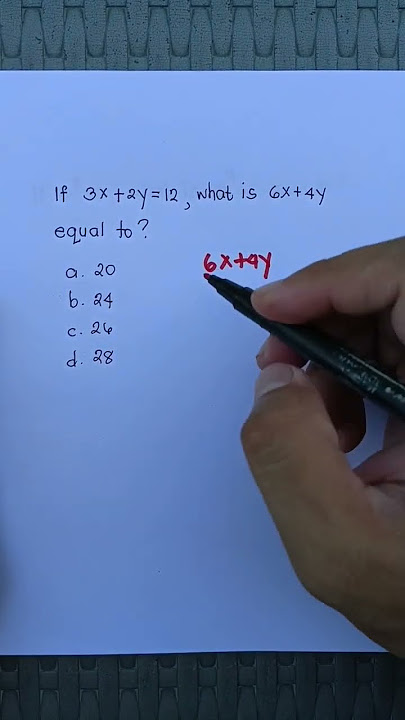 If 3x+2y=12, what is 6x+4y
equal to?
a. 20
6x+4y
b. 24
c. 26
d. 28